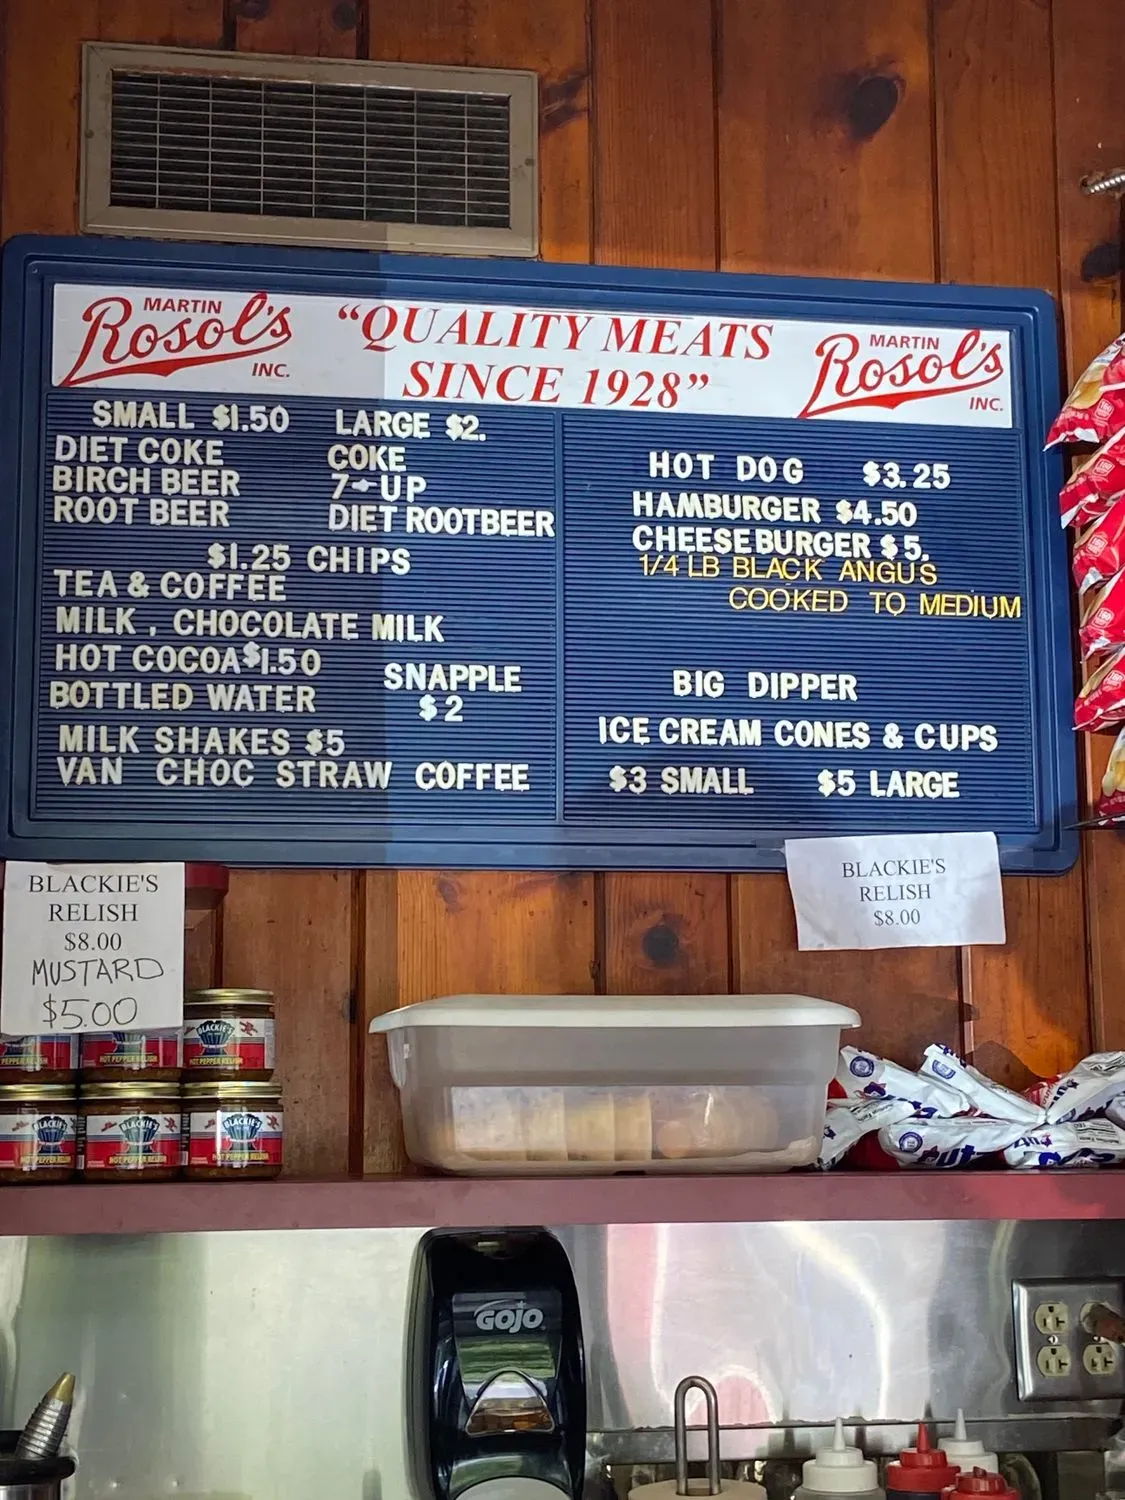 MARTIN
Rosol's
INC.
"QUALITY MEATS
SINCE 1928"
MARTIN
Rosol's
INC.
SMALL $1.50 LARGE $2.
DIET COKE COKE
BIRCH BEER 7-UP
ROOT BEER DIET ROOTBEER
$1.25 CHIPS
TEA & COFFEE
MILK , CHOCOLATE MILK
HOT COCOA $1.50
SNAPPLE
BOTTLED WATER $2
MILK SHAKES $5
VAN CHOC STRAW COFFEE
HOT DOG $3.25
HAMBURGER $4.50
CHEESEBURGER $5.
1/4 LB BLACK ANGUS
COOKED TO MEDIUM
BIG DIPPER
ICE CREAM CONES & CUPS
$3 SMALL $5 LARGE
BLACKIE'S
RELISH
$8.00
MUSTARD
$5.00
BLACKIE'S
RELISH
$8.00
BLACKIE'S
HOT PEPPER RELISH
HOT PEPPER RELISH
PEPPER RELISH
BLACKIE'S
HOT PEPPER RELISH
BLACKIE'S
HOT PEPPER RELISH
BLACKIE'S
HOT PEPPER RELISH
GOJO